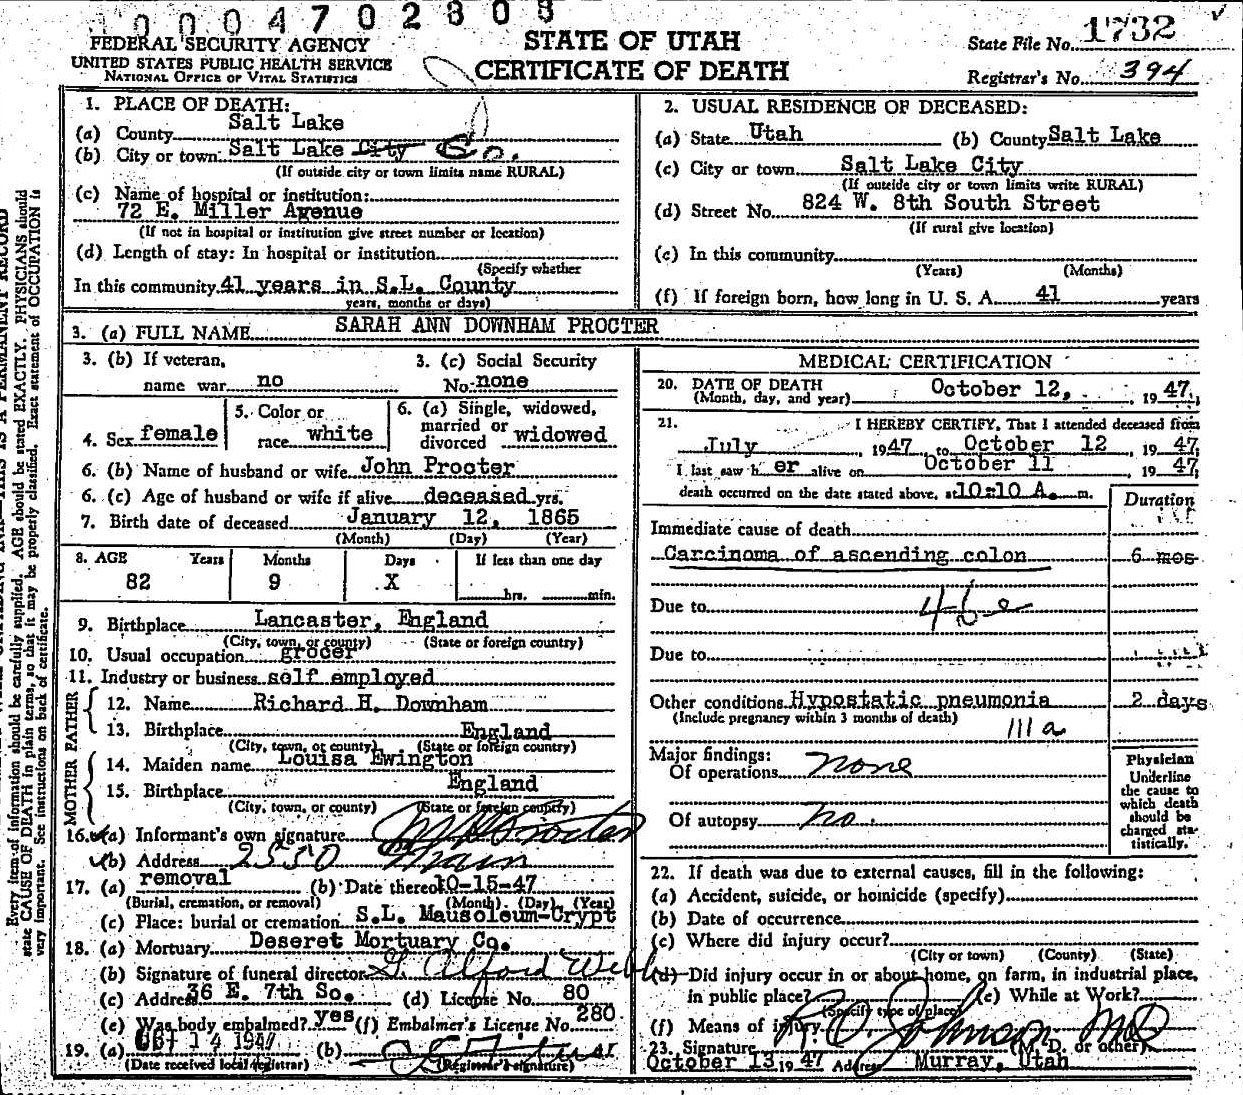 0004702808
FEDERAL SECURITY AGENCY
UNITED STATES PUBLIC HEALTH SERVICE
NATIONAL OFFICE OF VITAL STATISTICS
STATE OF UTAH
CERTIFICATE OF DEATH
State File No. 1732
Registrar's No. 394
1. PLACE OF DEATH:
(a) County Salt Lake
(b) City or town: Salt Lake City Co.
(If outside city or town limits name RURAL)
(c) Name of hospital or institution:
72 E. Miller Agenue
(If not in hospital or institution give street number or location)
(d) Length of stay: In hospital or institution
(Specify whether
In this community 41 years in S.L. County
years, months or days)
2. USUAL RESIDENCE OF DECEASED:
(a) State Utah (b) County Salt Lake
(c) City or town Salt Lake City
(If outside city or town limits write RURAL)
(d) Street No. 824 W. 8th South Street
(If rural give location)
(e) In this community
(Years) (Months)
(f) If foreign born, how long in U. S. A. 41 years
3. (a) FULL NAME SARAH ANN DOWNHAM PROCTER
3. (b) If veteran, name war no
3. (c) Social Security No. none
4. Sex female
5. Color or race white
6. (a) Single, widowed, married or divorced widowed
6. (b) Name of husband or wife John Procter
6. (c) Age of husband or wife if alive deceased yrs.
7. Birth date of deceased January 12, 1865
(Month) (Day) (Year)
8. AGE Years Months Days If less than one day
82 9 X hrs. min.
9. Birthplace Lancaster, England
(City, town, or county) (State or foreign country)
10. Usual occupation grocer
11. Industry or business self employed
FATHER
12. Name Richard H. Downham
13. Birthplace England
(City, town, or county) (State or foreign country)
MOTHER
14. Maiden name Louisa Ewington
15. Birthplace England
(City, town, or county) (State or foreign country)
16. (a) Informant's own signature Procter
(b) Address 2550 Main
17. (a) removal (b) Date thereof 10-15-47
(Burial, cremation, or removal) (Month) (Day) (Year)
(c) Place: burial or cremation S.L. Mausoleum-Crypt
18. (a) Mortuary Deseret Mortuary Co.
(b) Signature of funeral director G. Alford Webb
(c) Address 36 E. 7th So. (d) License No. 80
(e) Was body embalmed? yes (f) Embalmer's License No. 280
19. (a) OCT 14 1947 (b)
(Date received local registrar) (Registrar's signature)
MEDICAL CERTIFICATION
20. DATE OF DEATH
(Month, day, and year) October 12, 1947
21. I HEREBY CERTIFY, That I attended deceased from
July 1947 to October 12, 1947
I last saw her alive on October 11 1947
death occurred on the date stated above, at 10:10 A. m.
Duration
Immediate cause of death
Carcinoma of ascending colon 6 mos
Due to 46e
Due to
Other conditions Hypostatic pneumonia 2 days
(Include pregnancy within 3 months of death)
111a
Major findings:
Of operations none
Of autopsy no.
Physician
Underline
the cause to
which death
should be
charged sta-
tistically.
22. If death was due to external causes, fill in the following:
(a) Accident, suicide, or homicide (specify)
(b) Date of occurrence
(c) Where did injury occur?
(City or town) (County) (State)
(d) Did injury occur in or about home, on farm, in industrial place,
in public place? (e) While at Work?
(Specify type of place)
(f) Means of injury
23. Signature R. O. Johnson MD (M. D. or other)
October 13, 1947 Address Murray, Utah
Every item of information should be carefully supplied. AGE should be stated EXACTLY. PHYSICIANS should
state CAUSE OF DEATH in plain terms, so that it may be properly classified. Exact statement of OCCUPATION is
very important. See instructions on back of certificate.